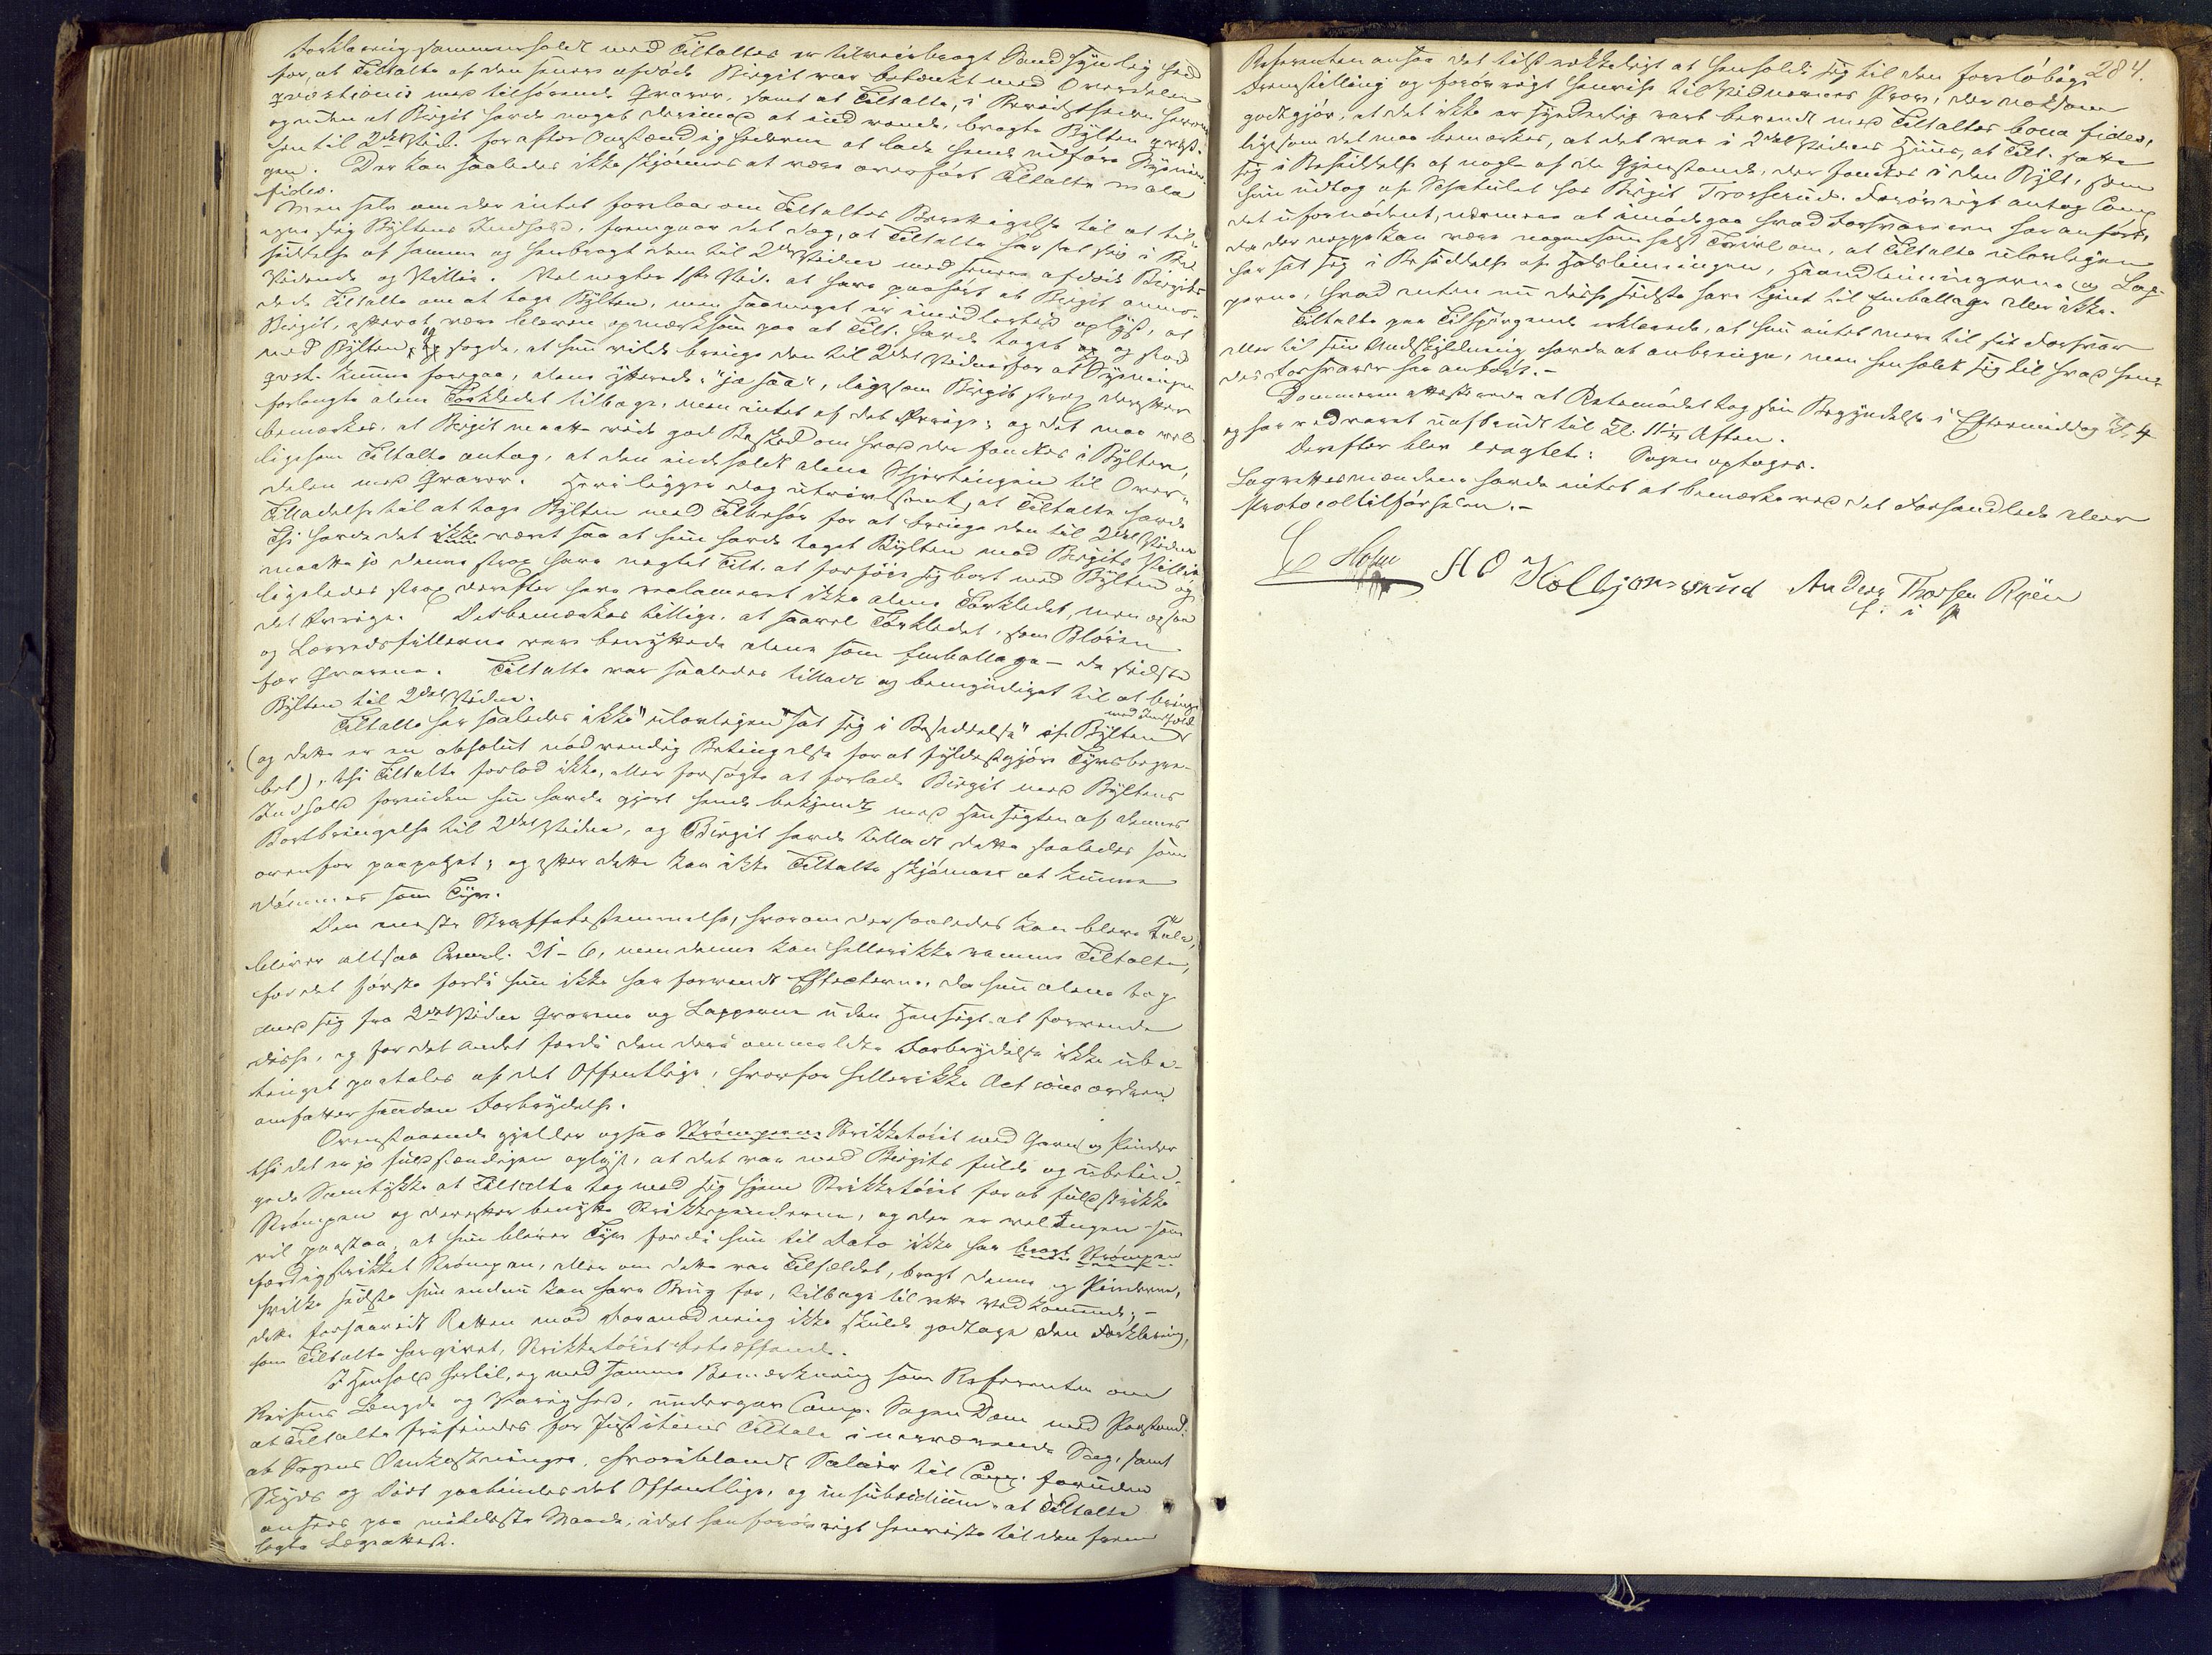 Forklaring sammenholdt med Tiltaltes er tilveiebragt Sandsynlighed
for, at Tiltalte af den senere afdøde Birgit var betænkt med Overdelen
qvæstionis med tilhørende Qvarer, samt at Tiltalte, i Bevidstheden herom
og uden at Birgit havde noget derimod at indvende, bragte Bylten qvæst.
hen til 2det Vidne for efter Omstændighederne at lade hende udføre Syningen.
Der kan saaledes ikke skjønnes at være overført Tiltalte mala
fides.
Men selv om der intet forelaa om Tiltaltes Berettigelse til at til-
egne sig Byltens Indhold, fremgaar det dog, at Tiltalte har sat sig i Be-
siddelse af samme og henbragt dem til 2det Vidne med senere afdøde Birgits
Vidende og Villie. Vel negter 1ste Vidne at have paahørt at Birgit anmo-
dede Tiltalte om at tage Bylten, men saameget er imidlertid oplyst, at
Birgit, efterat være bleven opmærksom paa at Tilt. havde taget og stod
med Bylten, og sagde, at hun vilde bringe den til 2det Vidne for at Syningen
qvæst. kunne foregaa, alene yttrede: "ja saa", ligesom Birgit strax derefter
forlangte alene Tørklædet tilbage, men intet af det Øvrige; og det maa vel
bemærkes, at Birgit maatte vide god Besked om hvad der fandtes i Bylten,
ligesom Tiltalte antog, at den indeholdt alene Skjortingen til Over-
delen med Qvarer. Heri ligger dog utvivlsomt, at Tiltalte havde
Tilladelse til at tage Bylten med Tilbehør for at bringe den til 2det Vidne
Thi havde det ikke været saa at hun havde taget Bylten med Birgits Villie
maatte jo denne strax have negtet Tilt. at forføie sig bort med Bylten og
ligeledes strax derefter have reclameret ikke alene Tørklædet, men ogsaa
det Øvrige. Det bemærkes tillige, at saavel Tørklædet, som Bløien
og Lærredsfillerne vare benyttede alene som Emballage – de sidste
for Qvarene. Tiltalte var saaledes tilladt og bemyndiget til at bringe
Bylten til 2det Vidne.
Tiltalte har saaledes ikke "ulovligen sat sig i Besiddelse" af Bylten med Indhold
(og dette er en absolut nødvendig Betingelse for at fyldestgjøre Tyvsbegre-
bet), thi Tiltalte forlod ikke, eller forsøgte at forlade Birgit med Byltens
Indhold forinden hun havde gjort hende bekjendt med Hensigten af dennes
Bortbringelse til 2det Vidne, og Birgit havde tilladt dette saaledes som
ovenfor paapeget; og efter dette kan ikke Tiltalte skjønnes at kunne
dømmes som Tyv.
Den næste Straffebestemmelse, hvorom der saaledes kan blive Tale,
bliver altsaa Criml. 21–6, men denne kan hellerikke ramme Tiltalte,
for det første fordi hun ikke har forvendt Effecterne, da hun alene tog
med sig fra 2det Vidne Qvarene og Lapperne uden Hensigt at forvende
disse, og for det andet fordi den deri ommeldte Forbrydelse ikke ube-
tinget paatales af det Offentlige, hvorfor hellerikke Actionsordren
omfatter saadan Forbrydelse.
Ovenstaaende gjælder ogsaa Strømpens Strikketøiet med Garn og Pinder
thi det er jo fuldstændigen oplyst, at det var med Birgits fulde og ubetin-
gede Samtykke at Tiltalte tog med sig hjem Strikketøiet for at fuldstrikke
Strømpen og derefter benytte Strikkepinderne, og der er vel Ingen som
vil paastaa, at hun bliver Tyv fordi hun til Dato ikke har bragt Strømpen
færdigstrikket Strømpen, eller om dette var Tilfældet, bragt denne og Pinderne,
hvilke sidste hun endnu kan have Brug for, tilbage til rette Vedkommende; –
dette forsaavidt Retten mod Formodning ikke skulde godtage den Forklaring,
som Tiltalte har givet, Strikketøiet betræffende.
I Henhold hertil, og med samme Bemærkning som Referenten om
Reisens Længde og Varighed, undergav Comp. Sagen Dom med Paastand:
at Tiltalte frifindes for Justitiens Tiltale i nærværende Sag, samt
at Sagens Omkostninger, hvoriblandt Salair til Comp. foruden
Skyds og Diæt paabindes det Offentlige, og in subsidium: at Tiltalte
ansees paa mildeste Maade, idet han forøvrigt henviste til den frem-
lagte Lægeattest.
284.
Referenten ansaa det tilstrækkeligt at henholde sig til den foreløbige
Fremstilling og forøvrigt henvise til Vidnernes Prov, der noksom
godtgjør, at det ikke er synderlig vart bevendt med Tiltaltes bona fides,
ligesom det maa bemærkes, at det var i 2det Vidnes Huus, at Tilt. satte
sig i Besiddelse af nogle af de Gjenstande, der fandtes i den Bylt, som
hun udtog af Schatullet hos Birgit Trosserud. Forøvrigt antog Comp
det ufornødent, nærmere at imødegaa hvad Forsvareren har anført,
da der neppe kan være nogensomhelst Tvivl om, at Tiltalte ulovligen
har sat sig i Besiddelse af Halslinningen, Haandlinningerne og Lap-
perne, hvad enten nu disse sidste have tjent til Emballage eller ikke.
Tiltalte paa Tilspørgende erklærede, at hun intet mere til sit Forsvar
eller til sin Undskyldning havde at anbringe, men henholdt sig til hvad hen-
des Forsvarer har anført. –
Dommeren attesterede at Retsmødet tog sin Begyndelse i Eftermiddag Kl. 4
og har vedvaret uafbrudt til Kl. 11½ Aften.
Derefter blev eragtet: Sagen optages.
Lagrettesmændene havde intet at bemærke ved det Forhandlede eller
Protocoltilførselen. –
C Holm A O Kolbjørnsrud Anders Thorsen Ryen
f. i p